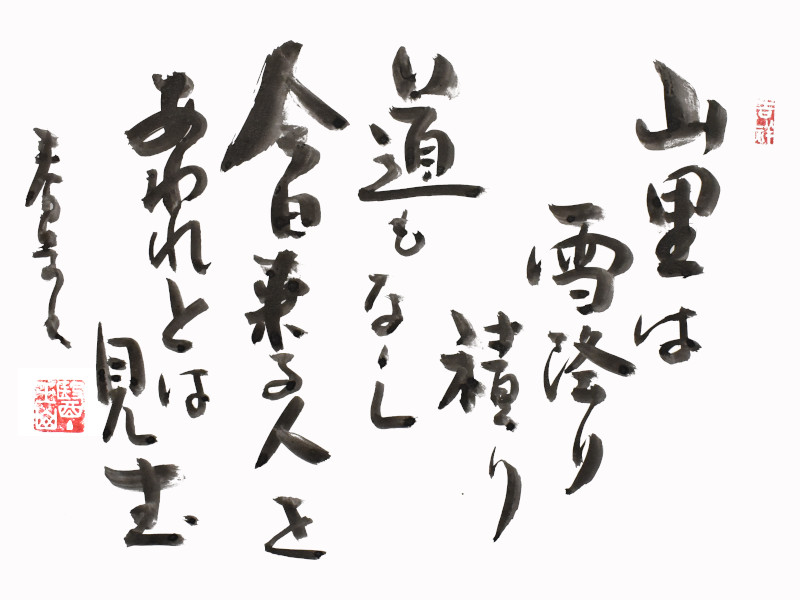 山里は
雪降り
積り
道もなし
今日来る人を
あわれとは
見む
吉祥